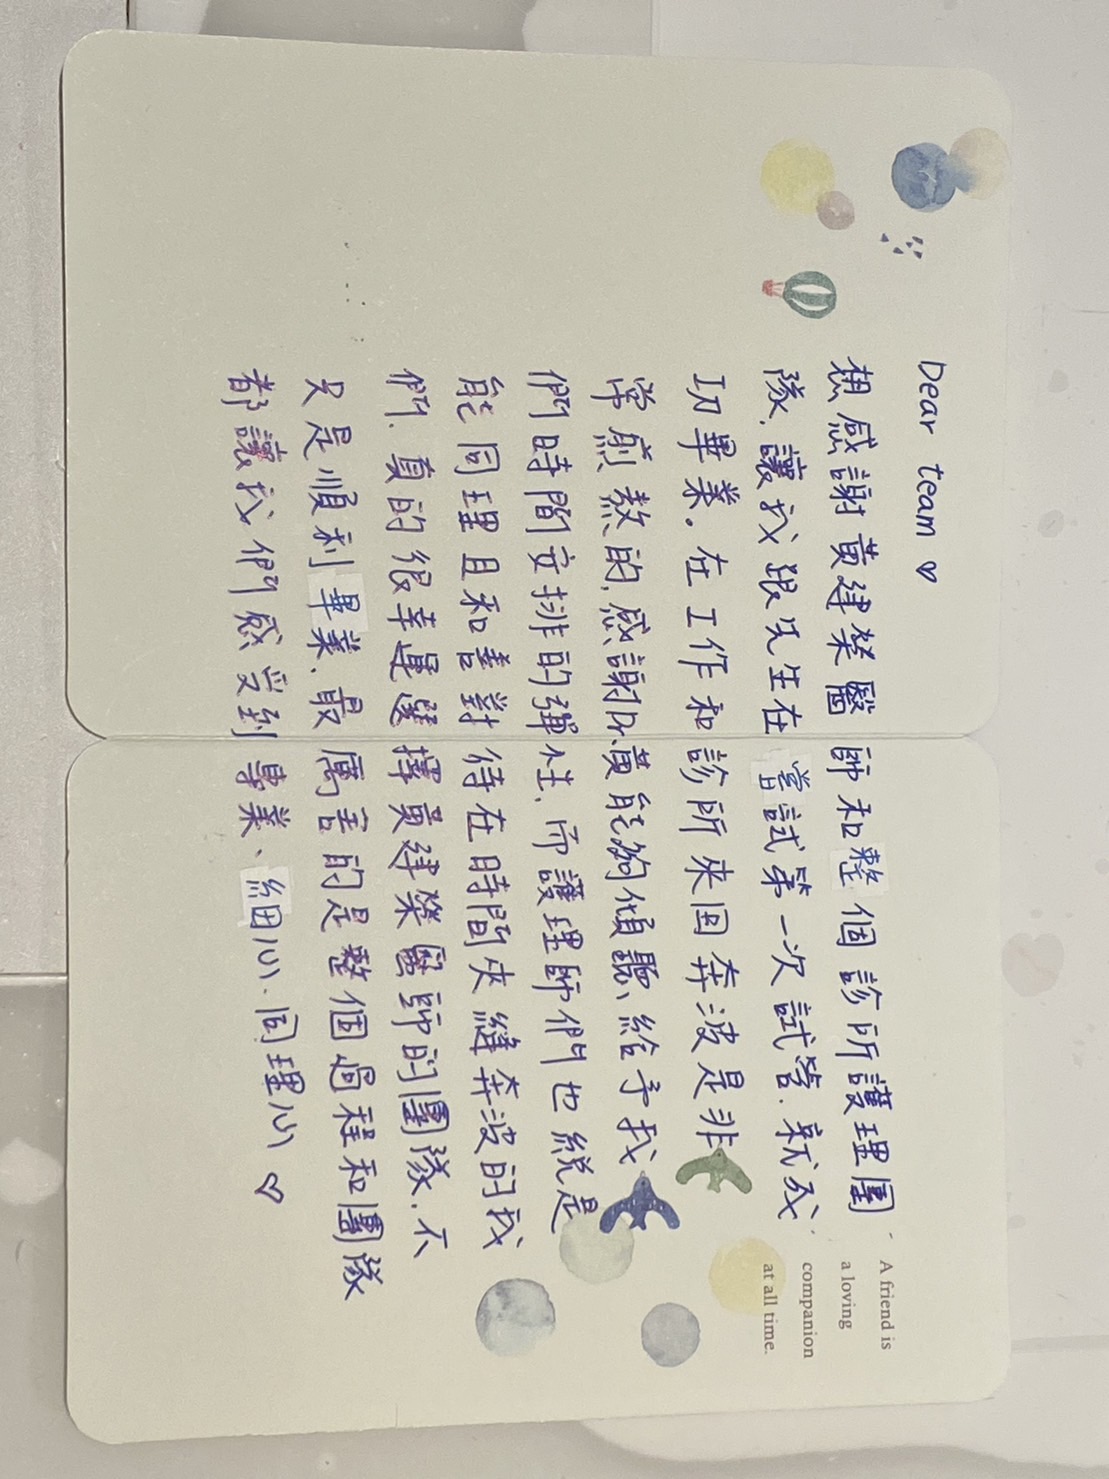 Dear team ♡
想感謝黃建榮醫師和整個診所護理團
隊、讓我跟先生在嘗試第一次試管.就成
功畢業。在工作和診所來回奔波是非
常煎熬的,感謝Dr.黃能夠傾聽、給予我
們時間安排的彈性、而護理師們也總是
能同理且和善對待在時間夾縫奔波的我
們、真的很幸運選擇黃建榮醫師的團隊、不
只是順利畢業、最厲害的是整個過程和團隊
都讓我們感受到專業、細心、同理心 ♡
A friend is
a loving
companion
at all time.